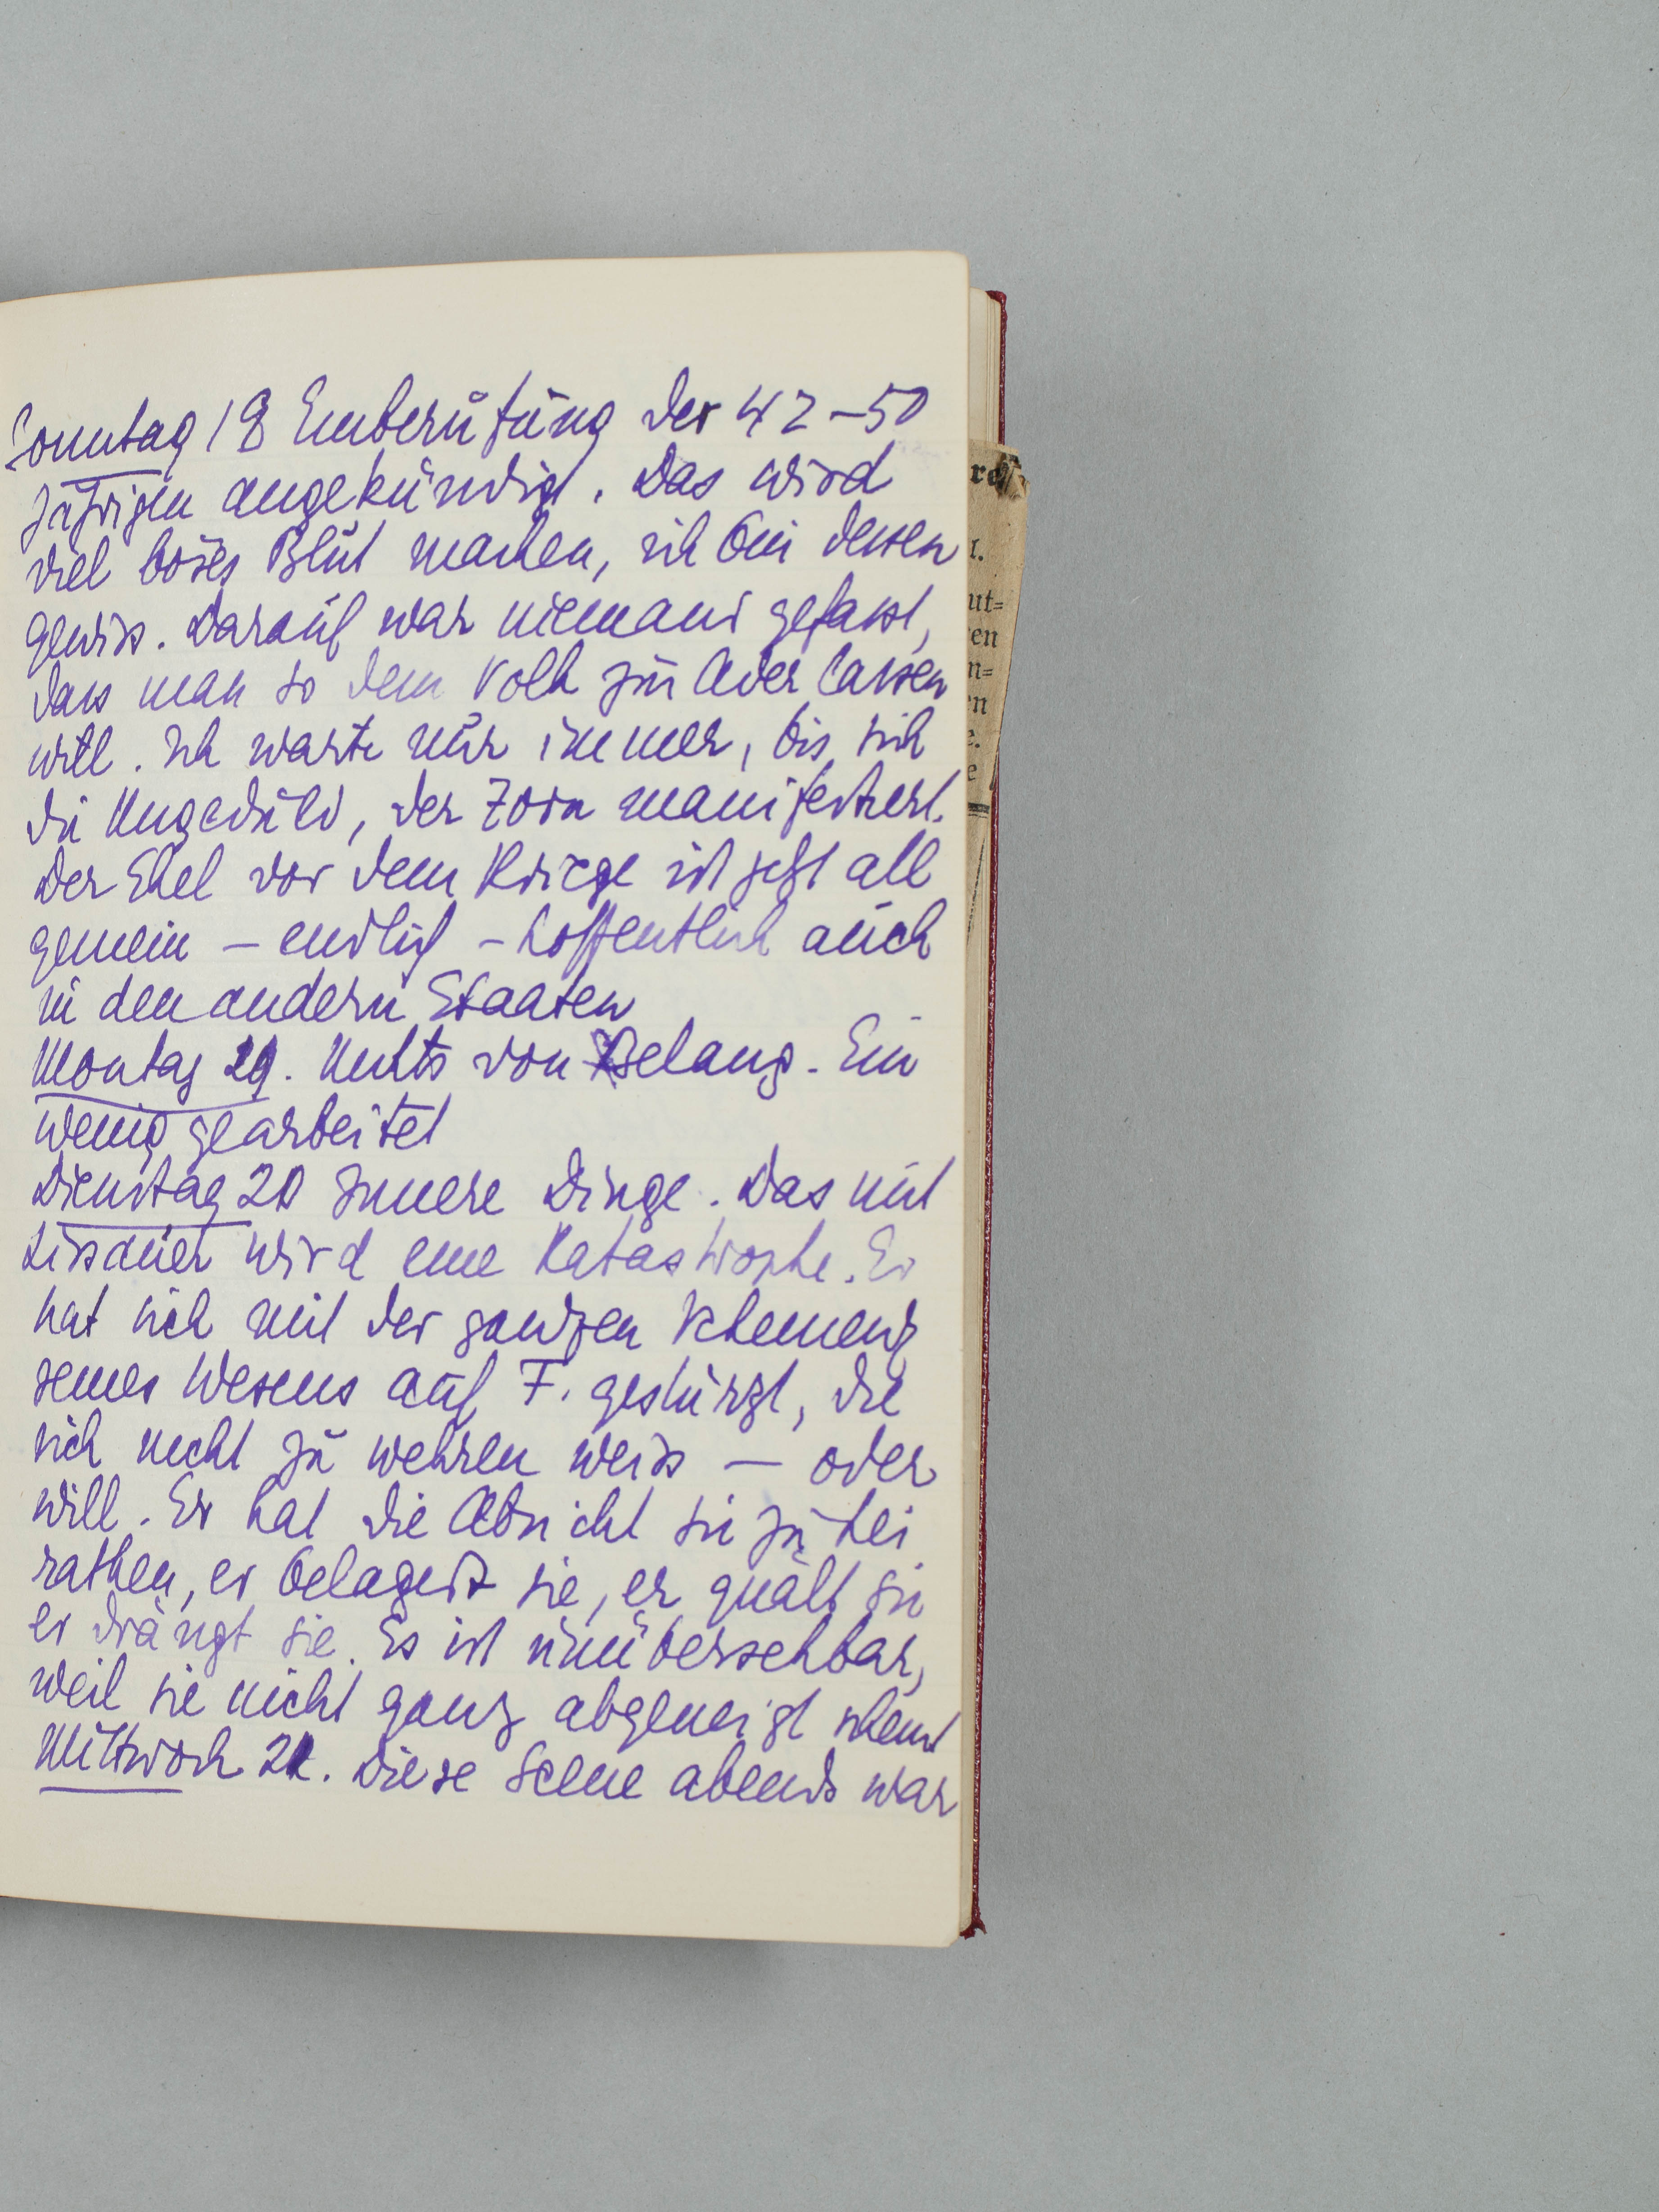 Sonntag 18 Einberufung der 42–50
jährigen angekündigt. Das wird
viel böses Blut machen, ich bin dessen
gewiss. Darauf war niemand gefasst,
dass man so dem Volk zur Ader lassen
will. Ich warte nur immer, bis sich
die Ungeduld, der Zorn manifestiert.
Der Ekel vor dem Kriege ist jetzt all
gemein – endlich – hoffentlich auch
in den andern Staaten
Montag 19. Nichts von Belang. Ein
wenig gearbeitet
Dienstag 20 Innere Dinge. Das mit
Lissauer wird eine Katastrophe. Er
hat sich mit der ganzen Vehemenz
seines Wesens auf F. gestürzt, die
sich nicht zu wehren weiss – oder
will. Er hat die Absicht sie zu hei
rathen, er belagert sie, er quält sie
er drängt sie. Es ist unübersehbar,
weil sie nicht ganz abgeneigt scheint
Mittwoch 21. Diese Scene abends war
re
r.
ut=
en
n=
en
e.
e